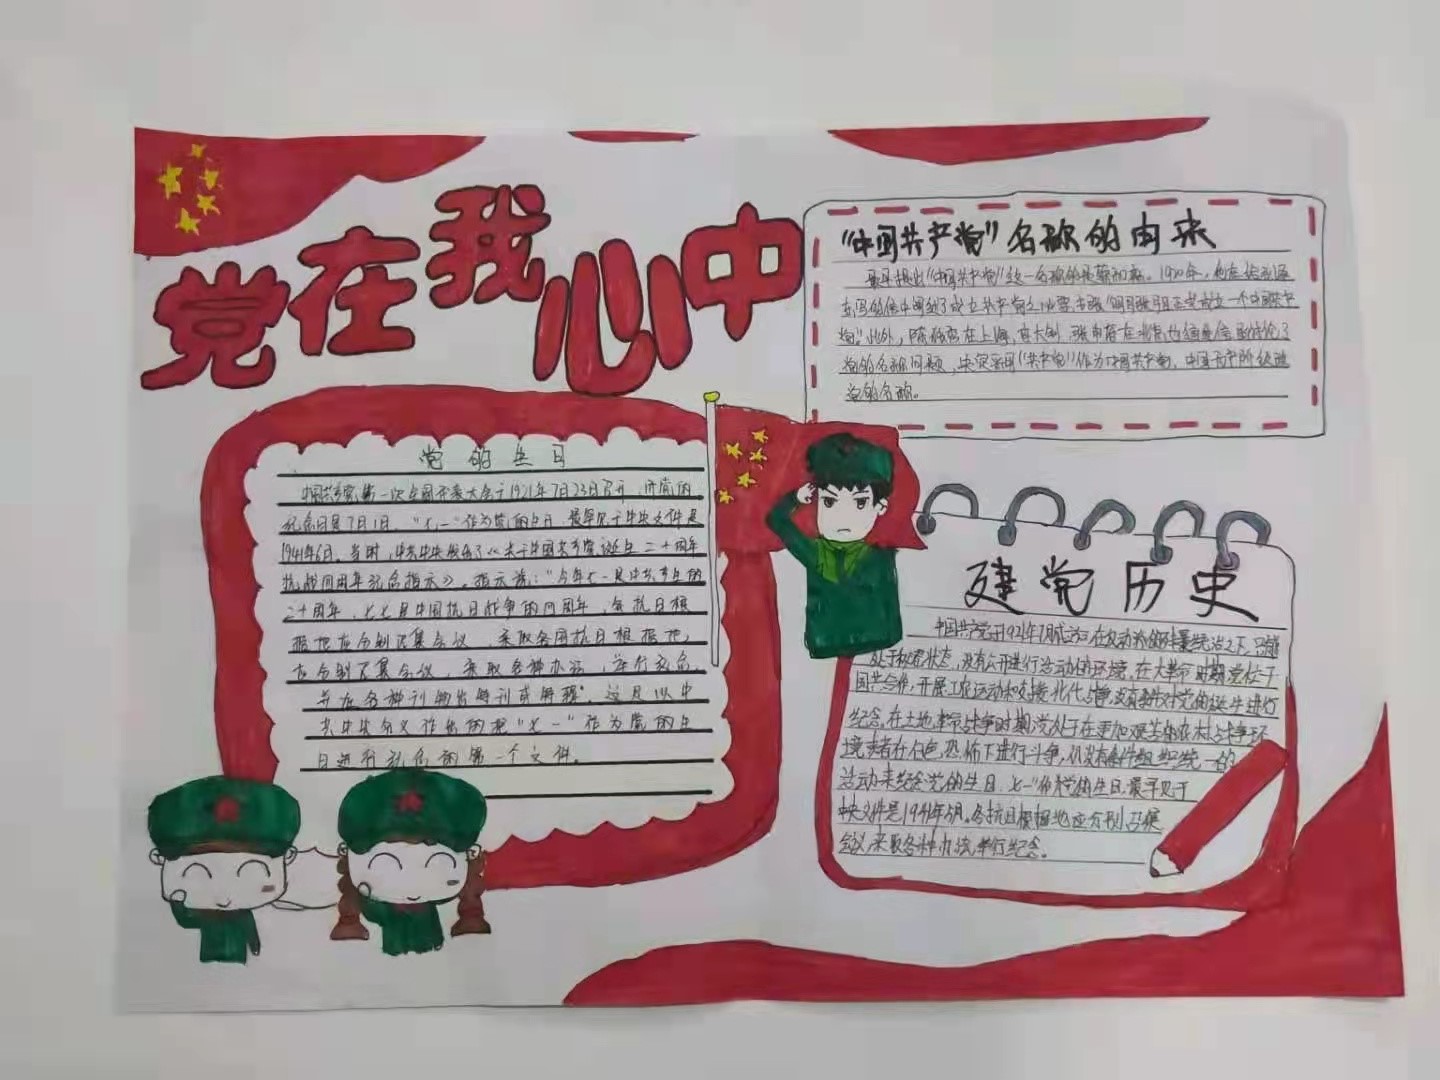 党在我心中
"中国共产党"名称的由来
最早提出"中国共产党"这一名称的是蔡和森。1920年，他在给毛泽
东写的信中阐述了成立共产党之必要，主张"明目张胆正式成立一个中国共产
党"。此外，陈独秀在上海，李大钊、张申府在北京，也通过信函讨论了
党的名称问题，决定采用"共产党"作为中国共产党，中国无产阶级政
党的名称。
党的生日
中国共产党第一次全国代表大会于1921年7月23日召开，而党的
纪念日是7月1日。"七一"作为党的生日，最早见于中央文件是
1941年6月。当时，中共中央发出了《关于中国共产党诞生二十周年
抗战四周年纪念指示》。指示说："今年七一是中共产生的
二十周年，七七是中国抗日战争的四周年，各抗日根
据地应分别召集会议，采取各国抗日根据地，
应分别召集会议，采取各种办法，举行纪念，
并在各种刊物出特刊或特辑"。这是以中
共中央名义作出的把"七一"作为党的生
日进行纪念的第一个文件。
建党历史
中国共产党于1921年7月成立后，在反动派的残暴统治之下，只能
处于秘密状态，没有公开进行活动的环境。在大革命时期，党位于
国共合作，开展工农运动和支援北伐战争，没有条件对党的诞生进行
纪念。在土地革命战争时期，党处于在更加艰苦的农村战争环
境或者在白色恐怖下进行斗争，仍没有条件组织统一的
活动来纪念党的生日。"七一"作为党的生日，最早见于
中央文件是1941年6月。各抗日根据地应分别召集
会议，采取各种办法，举行纪念。